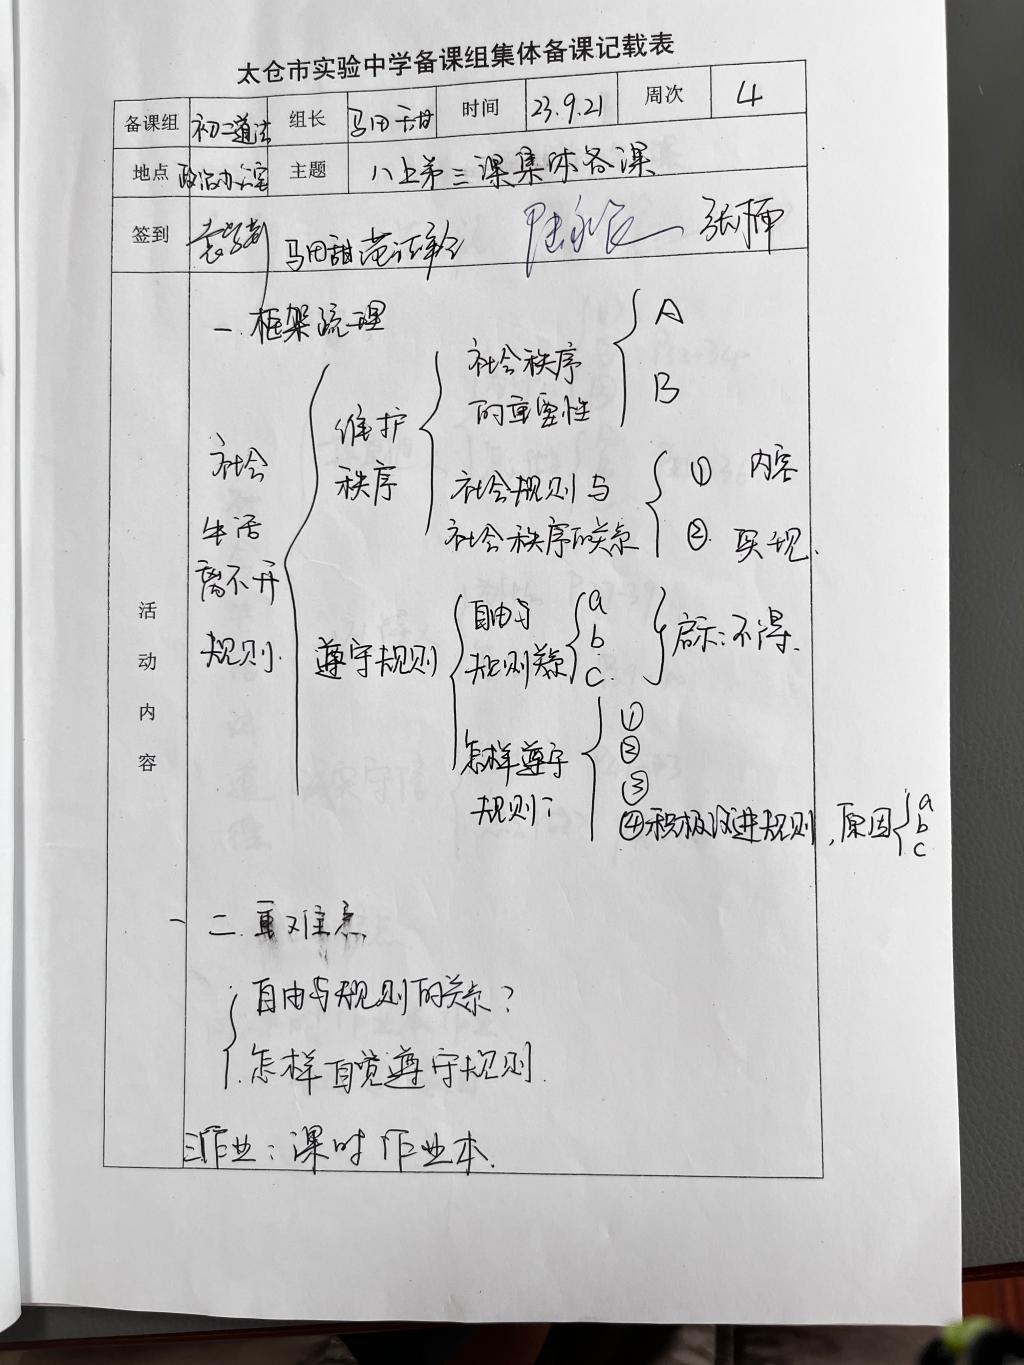 太仓市实验中学备课组集体备课记载表
备课组 初二道法 组长 马田甜 时间 23.9.21 周次 4
地点 政治办公室 主题 八上第三课集体备课
签到 马田甜 张楠
活动内容
一.框架疏理
社会生活离不开规则.
维护秩序
社会秩序的重要性
A
B
社会规则与社会秩序的关系
① 内容
②. 实现.
遵守规则
自由与规则关系
a
b
c.
启示:不得.
怎样遵守规则?
①
②
③
④积极改进规则,原因
a
b
c
二.重难点
自由与规则的关系?
怎样自觉遵守规则.
三作业:课时作业本.